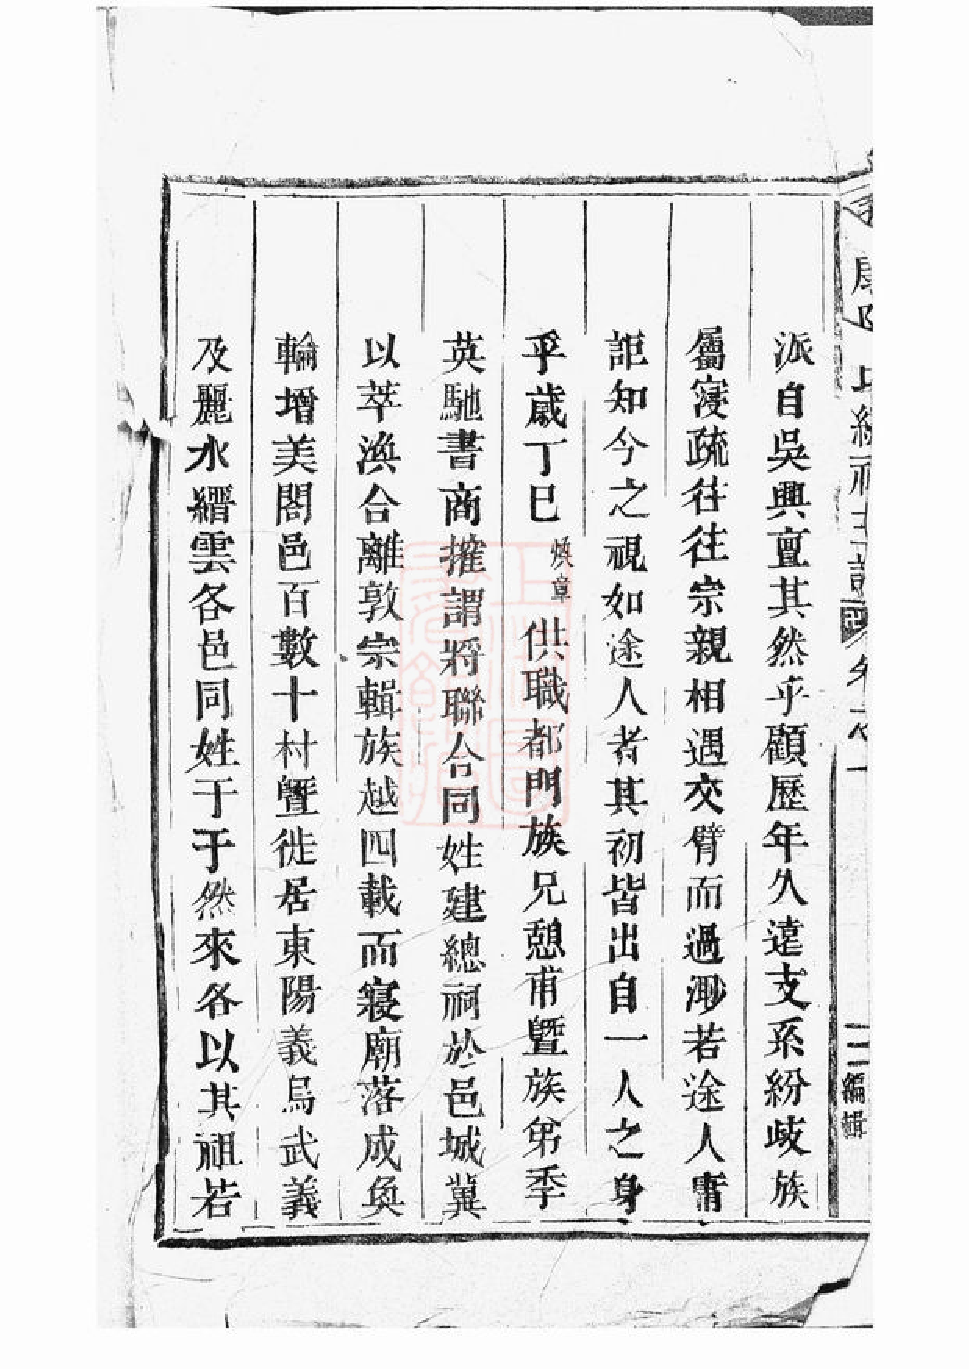 派自吳興亶其然乎顧歷年久遠支系紛歧族
屬寖疏往往宗親相遇交臂而過渺若途人庸
詎知今之視如途人者其初皆出自一人之身
乎歲丁巳煥章供職都門族兄憩甫暨族弟季
英馳書商搉謂將聯合同姓建總祠於邑城冀
以萃渙合離敦宗輯族越四載而寢廟落成奐
輪增美閤邑百數十村暨徙居東陽義烏武義
及麗水縉雲各邑同姓于于然來各以其祖若
編輯